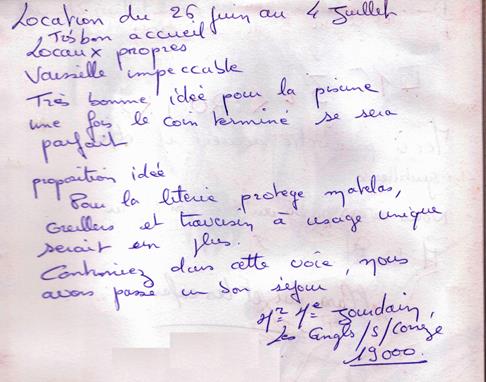 Location du 26 juin au 4 juillet
Très bon accueil
Locaux propres
Vaisselle impeccable
Très bonne idée pour la piscine
une fois le coin terminé se sera
parfait
proposition idée
Pour la literie protege matelas,
oreillers et traversin à usage unique
serait un plus.
Continuez dans cette voie, nous
avons passé un bon séjour
Mr Me Jourdain,
Les Angles/s/Corrèze
19000.